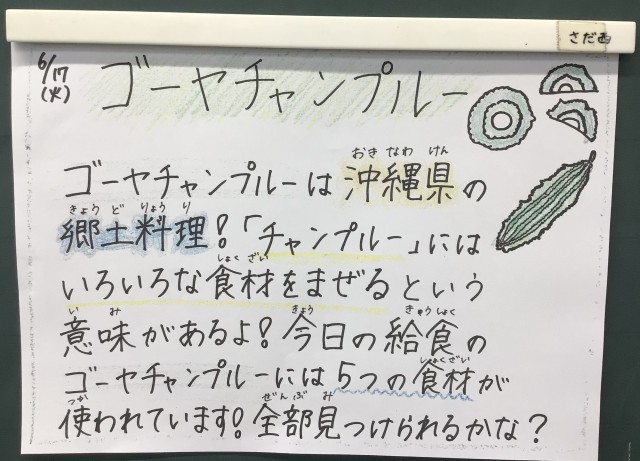 さだ西
6/17
(火)
ゴーヤチャンプルー
ゴーヤチャンプルーは沖縄県の
おきなわけん
郷土料理!「チャンプルー」には
きょうどりょうり
いろいろな食材をまぜるという
しょくざい
意味があるよ!今日の給食の
いみ
きょう
きゅうしょく
ゴーヤチャンプルーには5つの食材が
しょくざい
使われています!全部見つけられるかな?
つか
ぜんぶみ